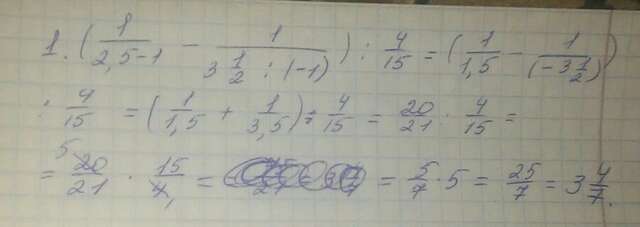 1. (1/(2,5-1) - 1/(3 1/2 : (-1))) : 4/15 = (1/1,5 - 1/(-3 1/2))
: 4/15 = (1/1,5 + 1/3,5) : 4/15 = 20/21 : 4/15 =
= 5 20/21 · 15/4 = = 5/7 · 5 = 25/7 = 3 4/7.